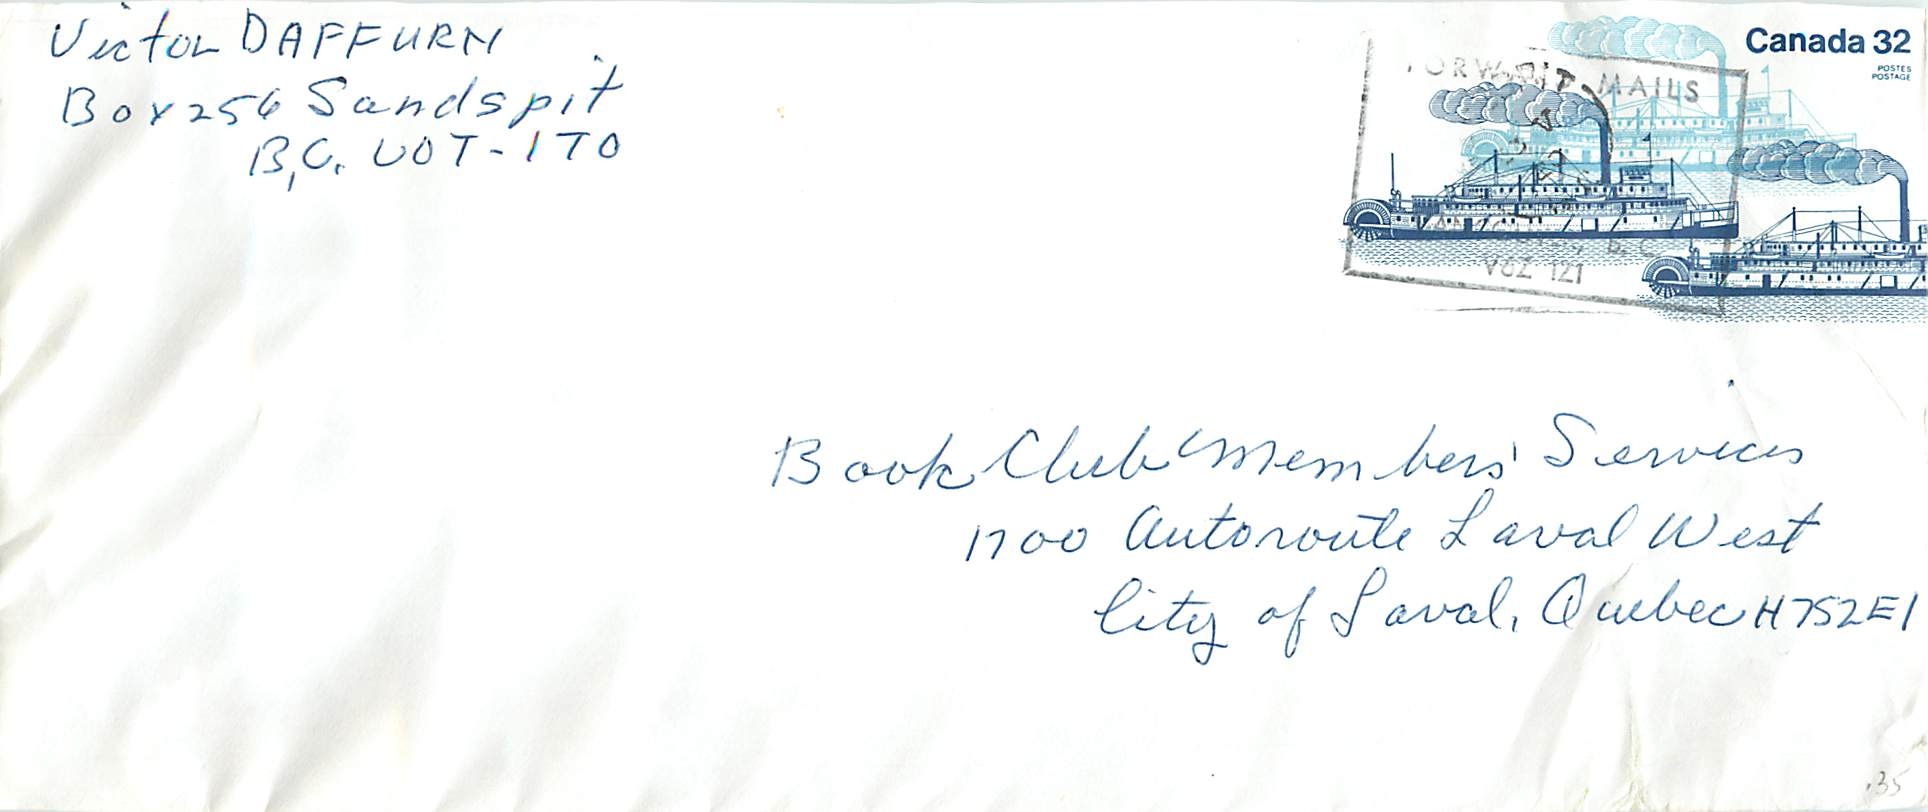 Victor DAFFURN
Box 256 Sandspit
B.C. V0T-1T0
Canada 32
POSTES
POSTAGE
MAILS
B.C.
V6Z 1Z1
Book Club Members' Services
1700 Autoroute Laval West
City of Laval, Quebec H7S2E1
.35